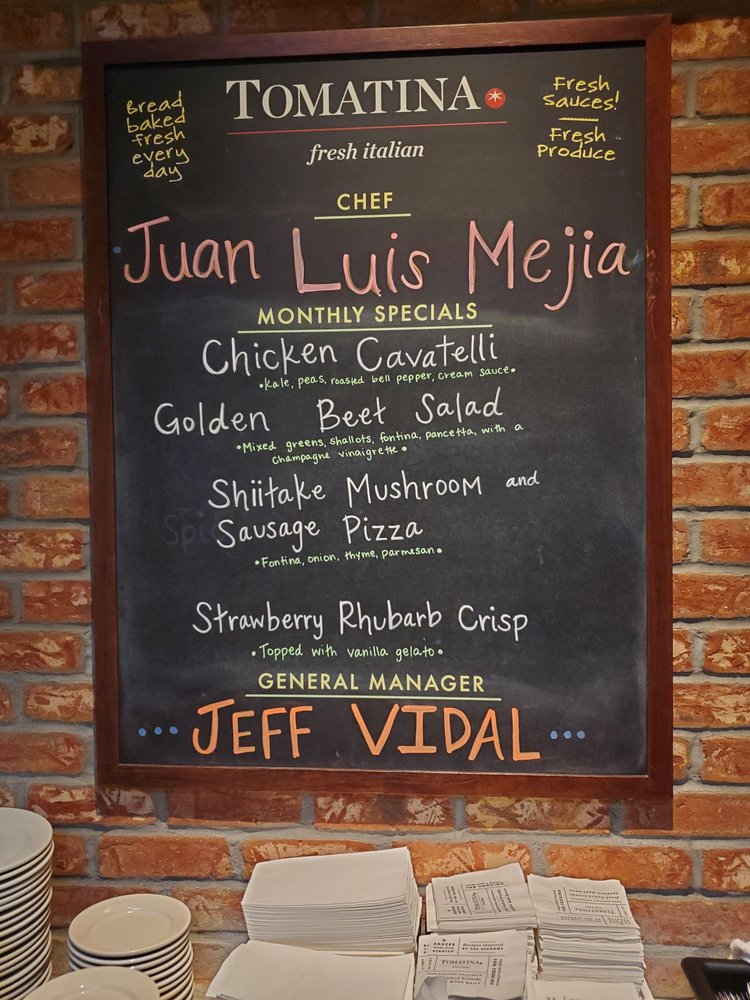 Bread
baked
fresh
every
day
TOMATINA
fresh italian
Fresh
Sauces!
Fresh
Produce
CHEF
Juan Luis Mejia
MONTHLY SPECIALS
Chicken Cavatelli
•Kale, peas, roasted bell pepper, cream sauce•
Golden Beet Salad
•Mixed greens, shallots, fontina, pancetta, with a
champagne vinaigrette•
Shiitake Mushroom and
Sausage Pizza
•Fontina, onion, thyme, parmesan•
Strawberry Rhubarb Crisp
•Topped with vanilla gelato•
GENERAL MANAGER
•••JEFF VIDAL•••
TOMATINA
Recipes Inspired
BY THE SEASONS
TOMATINA